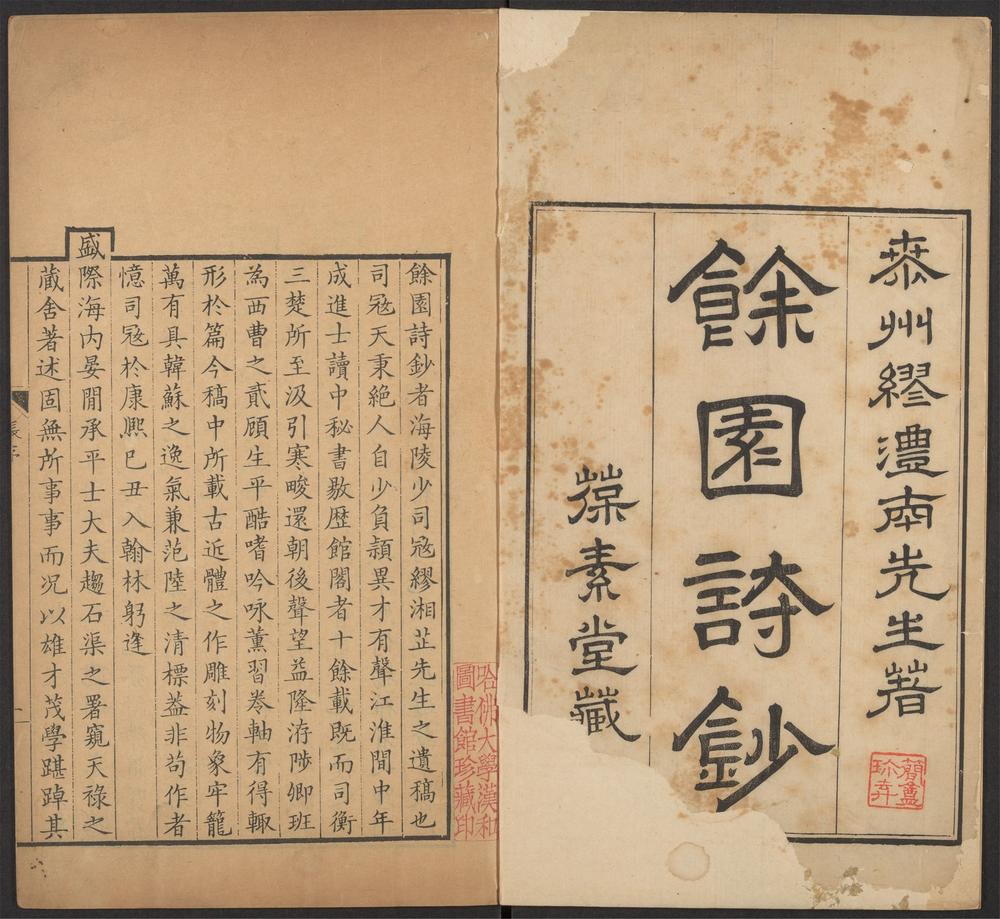 泰州繆澧南先生著
餘園詩鈔
葆素堂藏
簡盦
珍弆
哈佛大學漢和
圖書館珍藏印
餘園詩鈔者海陵少司冦繆湘芷先生之遺稿也
司冦天秉絶人自少負頴異才有聲江淮間中年
成進士讀中秘書敭歴館閣者十餘載既而司衡
三楚所至汲引寒畯還朝後聲望益隆洊陟卿班
為西曹之貳顧生平酷嗜吟咏薰習卷軸有得輙
形於篇今稿中所載古近體之作雕刻物象牢籠
萬有具韓蘇之逸氣兼范陸之清標葢非苟作者
憶司冦於康熈己丑入翰林躬逢
盛際海内晏閒承平士大夫趨石渠之署窺天禄之
蔵舍著述固無所事事而况以雄才茂學踸踔其